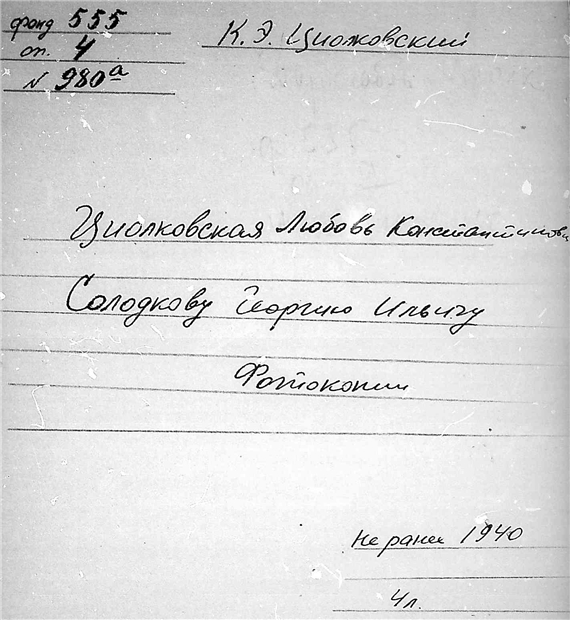 фонд 555
оп. 4
N 980а
К. Э. Циолковский
Циолковская Любовь Константиновн
Солодкову Георгию Ильичу
Фотокопии
не ранее 1940
4 л.